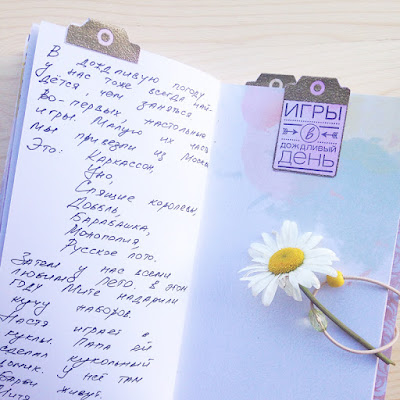 В дождливую погоду
у нас тоже всегда най-
дётся, чем заняться.
Во-первых, настольные
игры. Малую их часть
мы привезли из Москвы
Это:
Каркассон,
Уно,
Спящие королевы,
Доббль,
Барабашка,
Монополия,
Русское лото.
Затем у нас всеми
любимо Лето. В этом
году Мите надарили
кучу наборов.
Настя играет в
куклы. Папа ей
сделал кукольный
домик. У неё там
Барби живут.
Митя
ИГРЫ
В
ДОЖДЛИВЫЙ
ДЕНЬ